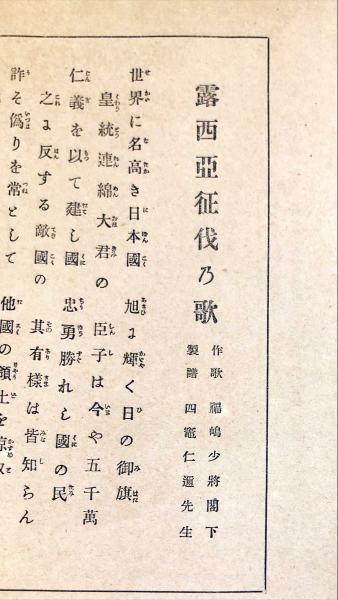 露西亞征伐乃歌
作歌 福嶋少將閣下
製譜 四竈仁邇先生
世界に名高き日本國 旭に輝く日の御旗
皇統連綿大君の 臣子は今や五千萬
仁義を以て建し國 忠勇勝れし國の民
之に反する敵國の 其有樣は皆知らん
詐と僞りを常として 他國の領土を掠め取